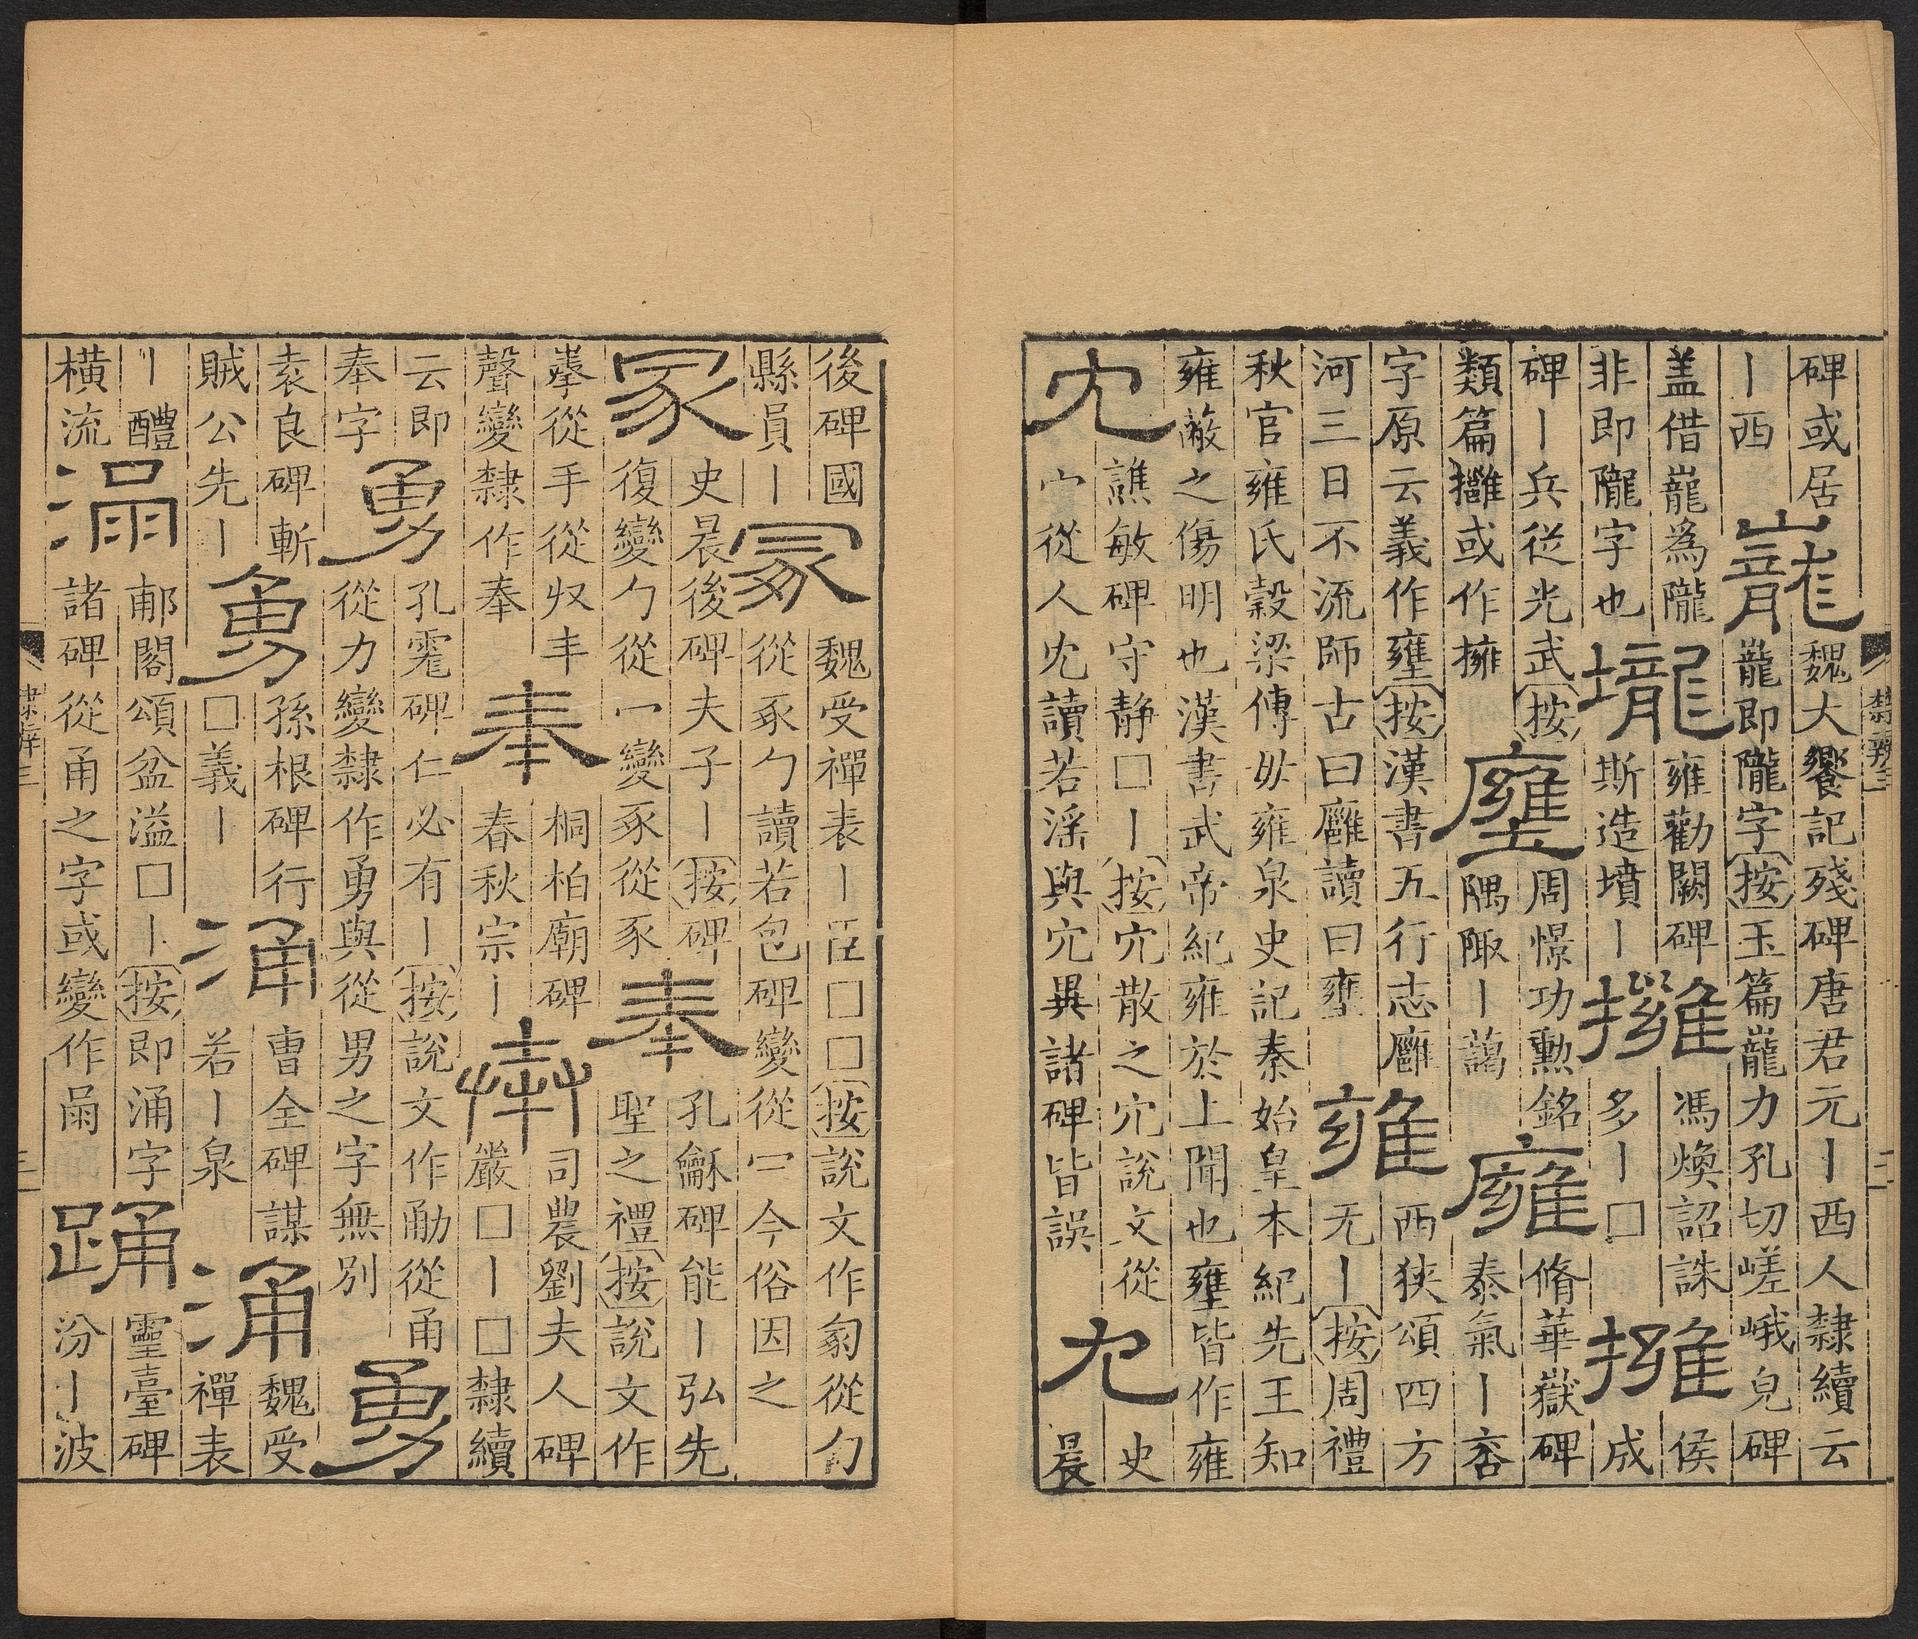 碑或居
丨西
巃
魏大饗記殘碑唐君元丨西人隸續云
巃即隴字按玉篇巃力孔切嵯峨皃碑
盖借巃爲隴
非即隴字也
壠
雍勸闕碑
斯造墳丨
擁
馮煥詔誅
多丨□
擁
侯
成
碑丨兵從光武按
類篇㩲或作擁
壅
周憬功勲銘
隅陬丨藹
廱
脩華嶽碑
泰氣丨否
字原云義作壅按漢書五行志廱
河三日不流師古曰廱讀曰壅
雍
西狹頌四方
无丨按周禮
秋官雍氏穀梁傳毋雍泉史記秦始皇本紀先王知
雍蔽之傷明也漢書武帝紀雍於上聞也壅皆作雍
冘
譙敏碑守静□丨按宂散之宂說文從
宀從人冘讀若淫與宂異諸碑皆誤
冗
史
晨
後碑國
縣員丨
冡
魏受禪表丨臣□□按說文作冢從勹
從豖勹讀若包碑變從冖今俗因之
冢
史晨後碑夫子丨按碑
復變勹從冖變豖從豕
奉
孔龢碑能丨弘先
聖之禮按說文作
𡴀從手從収丰
聲變隸作奉
奉
桐柏廟碑
春秋宗丨
司農劉夫人碑
嚴□丨□隸續
云即
奉字
勇
孔霮碑仁必有丨按說文作勈從甬
從力變隸作勇與從男之字無別
勇
袁良碑斬
賊公先丨
勇
孫根碑行
□義丨
涌
曹全碑謀
若丨泉
涌
魏受
禪表
丨醴
橫流
涌
郙閣頌盆溢□丨按即涌字
諸碑從甬之字或變作𠕋
踊
靈臺碑
汾丨波
隸辨三
二
三